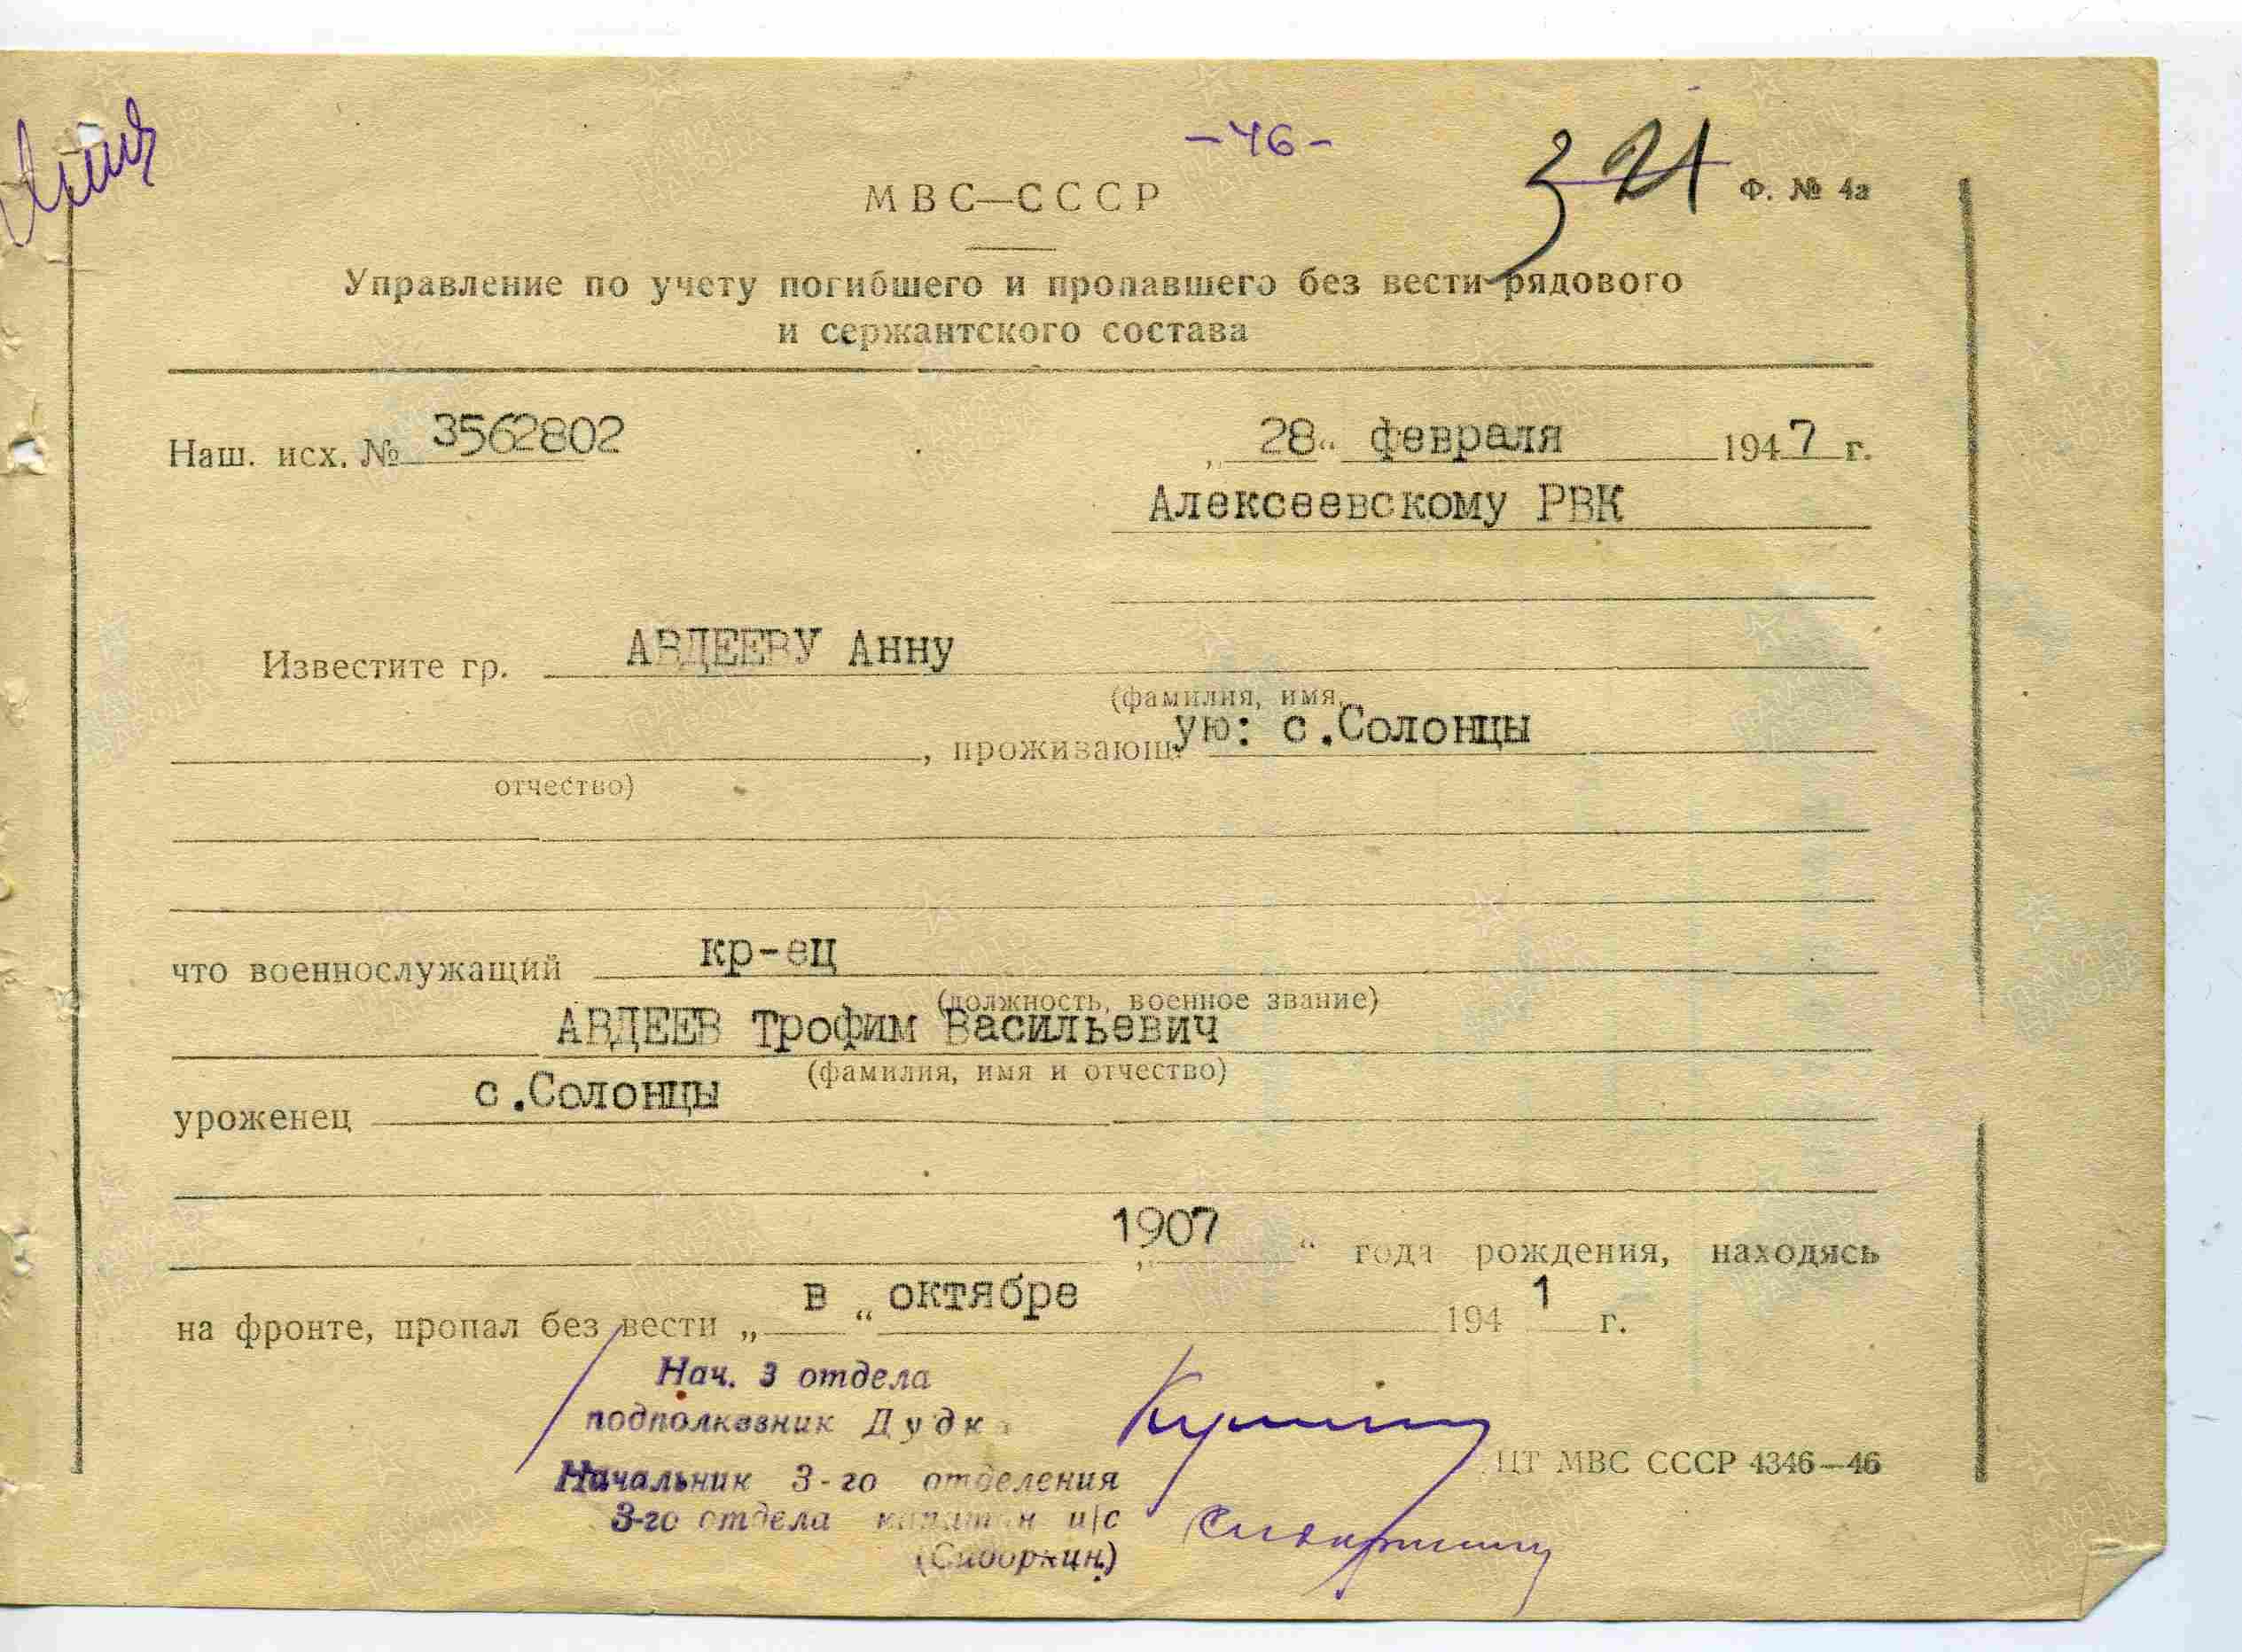 -46-
321
МВС—СССР
Ф. № 4а
Управление по учету погибшего и пропавшего без вести рядового
и сержантского состава
Наш. исх. № 3562802
„28“ февраля 1947 г.
Алексеевскому РВК
Известите гр. АВДЕЕВУ Анну
(фамилия, имя,
, проживающую: с.Солонцы
отчество)
что военнослужащий кр-ец
(должность, военное звание)
АВДЕЕВ Трофим Васильевич
(фамилия, имя и отчество)
уроженец с.Солонцы
„1907“ года рождения, находясь
на фронте, пропал без вести „в“ октябре 1941 г.
Нач. 3 отдела
подполковник Дудк
Начальник 3-го отделения
3-го отдела капитан и/с
(Сидоркин)
ЦТ МВС СССР 4346—46
ПАМЯТЬ НАРОДА